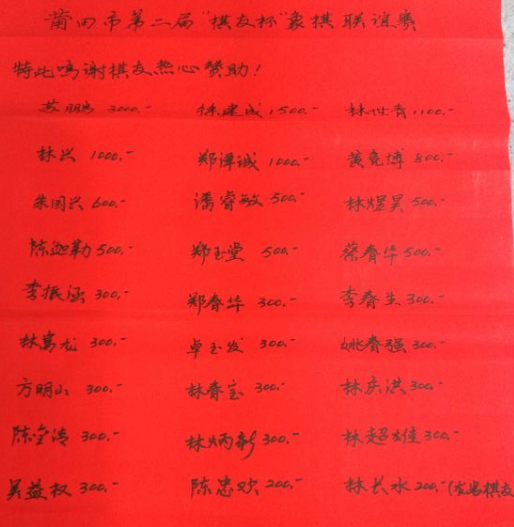 莆田市第二届“棋友杯”象棋联谊赛
特此鸣谢棋友热心赞助！
苏鹏 3000.- 徐建成 1500.- 林世青 1100.-
林兴 1000.- 郑谭诚 1000.- 黄竞博 800.-
朱国兴 600.- 潘睿敏 500.- 林煜昊 500.-
陈迦勒 500.- 郑玉堂 500.- 蔡春华 500.-
李振涵 300.- 郑春华 300.- 李春生 300.-
林万龙 300.- 卓玉发 300.- 姚春强 300.-
方明山 300.- 林春宝 300.- 林庆洪 300.-
陈金清 300.- 林炳新 300.- 林超雄 300.-
吴益权 300.- 陈忠欢 200.- 林长水 200.-(龙岩棋友